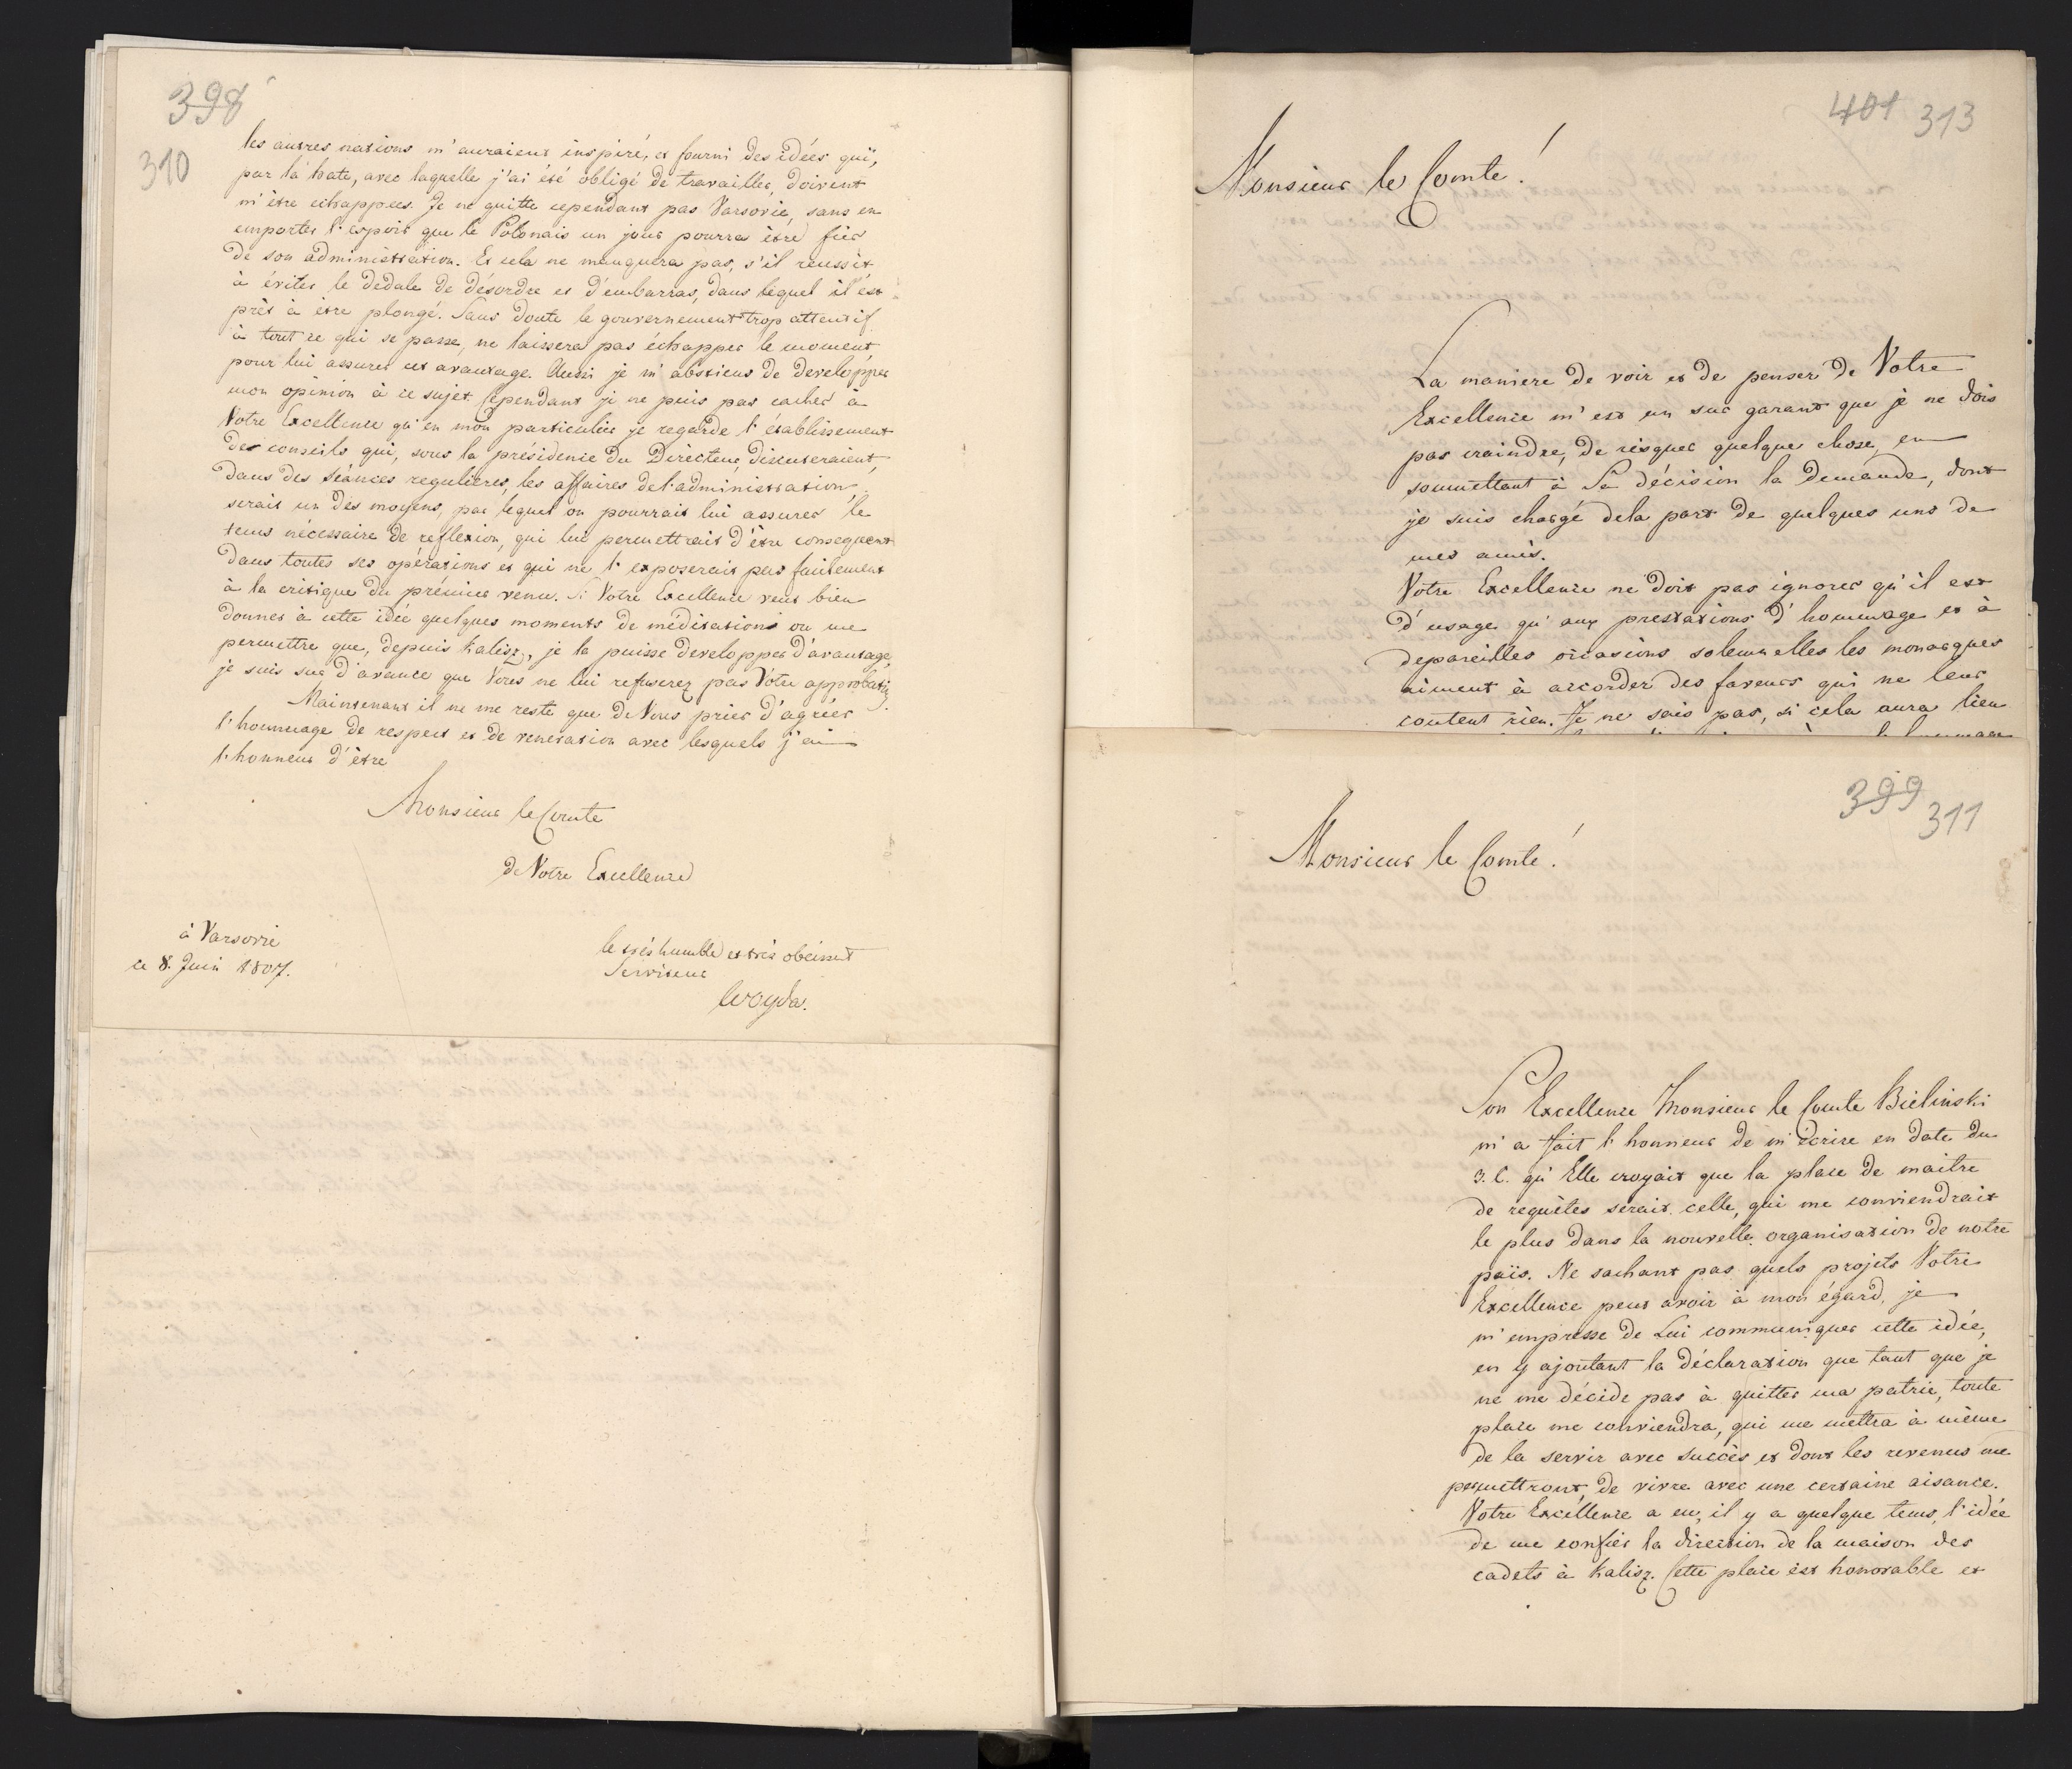 398
310
les autres nations m'auraient inspiré, et fourni des idées qui,
par la hate, avec laquelle j'ai été obligé de travailler, doivent
m'être échappées. Je ne quitte cependant pas Varsovie, sans en
emporter l'espoir que le Polonais un jour pourra être fier
de son administration. Et cela ne manquera pas, s'il reussit
à éviter le dedale de désordre et d'embarras, dans lequel il est
prèt à être plongé. Sans doute le gouvernement trop attentif
à tout ce qui se passe, ne laissera pas échapper le moment
pour lui assurer cet avantage. Aussi je m'abstiens de developper
mon opinion à ce sujet. Cependant je ne puis pas cacher à
Votre Excellence qu'en mon particulier je regarde l'établissement
des conseils qui, sous la présidence du Directeur, discuteraient,
dans des séances regulières, les affaires de l'administration,
serait un des moyens, par lequel on pourrait lui assurer le
tems nécessaire de reflexion, qui lui permettrait d'être consequent
dans toutes ses opérations et qui ne l'exposerait pas facilement
à la critique du prémier venu. Si Votre Excellence veut bien
donner à cette idée quelques moments de méditations ou me
permettre que, depuis Kalisz, je la puisse developper d'avantage,
je suis sur d'avance que Vous ne lui refuserez pas Votre approbation.
Maintenant il ne me reste que de Vous prier d'agréer
l'hommage de respect et de veneration avec lesquels j'ai
l'honneur d'être
Monsieur le Comte
de Votre Excellence
à Varsovie
ce 8. Juin 1807.
le très humble et très obéissant
Serviteur
Woyda.
401 313
Monsieur le Comte!
La maniere de voir et de penser de Votre
Excellence m'est un sur garant que je ne dois
pas craindre, de risquer quelque chose, en
soumettant à Sa décision la demande, dont
je suis chargé dela part de quelques uns de
mes amis.
Votre Excellence ne doit pas ignorer qu'il est
d'usage qu'aux prestations d'hommage et à
depareilles occasions solemnelles les monarques
aiment à accorder des faveurs qui ne leur
coutent rien. Je ne sais pas, si cela aura lieu
399 311
Monsieur le Comte!
Son Excellence Monsieur le Comte Bielinski
m'a fait l'honneur de m'écrire en date du
3. C. qu'Elle croyait que la place de maitre
de requêtes serait celle, qui me conviendrait
le plus dans la nouvelle organisation de notre
païs. Ne sachant pas quels projets Votre
Excellence peut avoir à mon égard, je
m'empresse de Lui communiquer cette idée,
en y ajoutant la déclaration que tant que je
ne me décide pas à quitter ma patrie, toute
place me conviendra, qui me mettra à même
de la servir avec succès et dont les revenus me
permettront de vivre avec une certaine aisance.
Votre Excellence a eu, il y a quelque tems, l'idée
de me confier la direction de la maison des
cadets à Kalisz. Cette place est honorable et